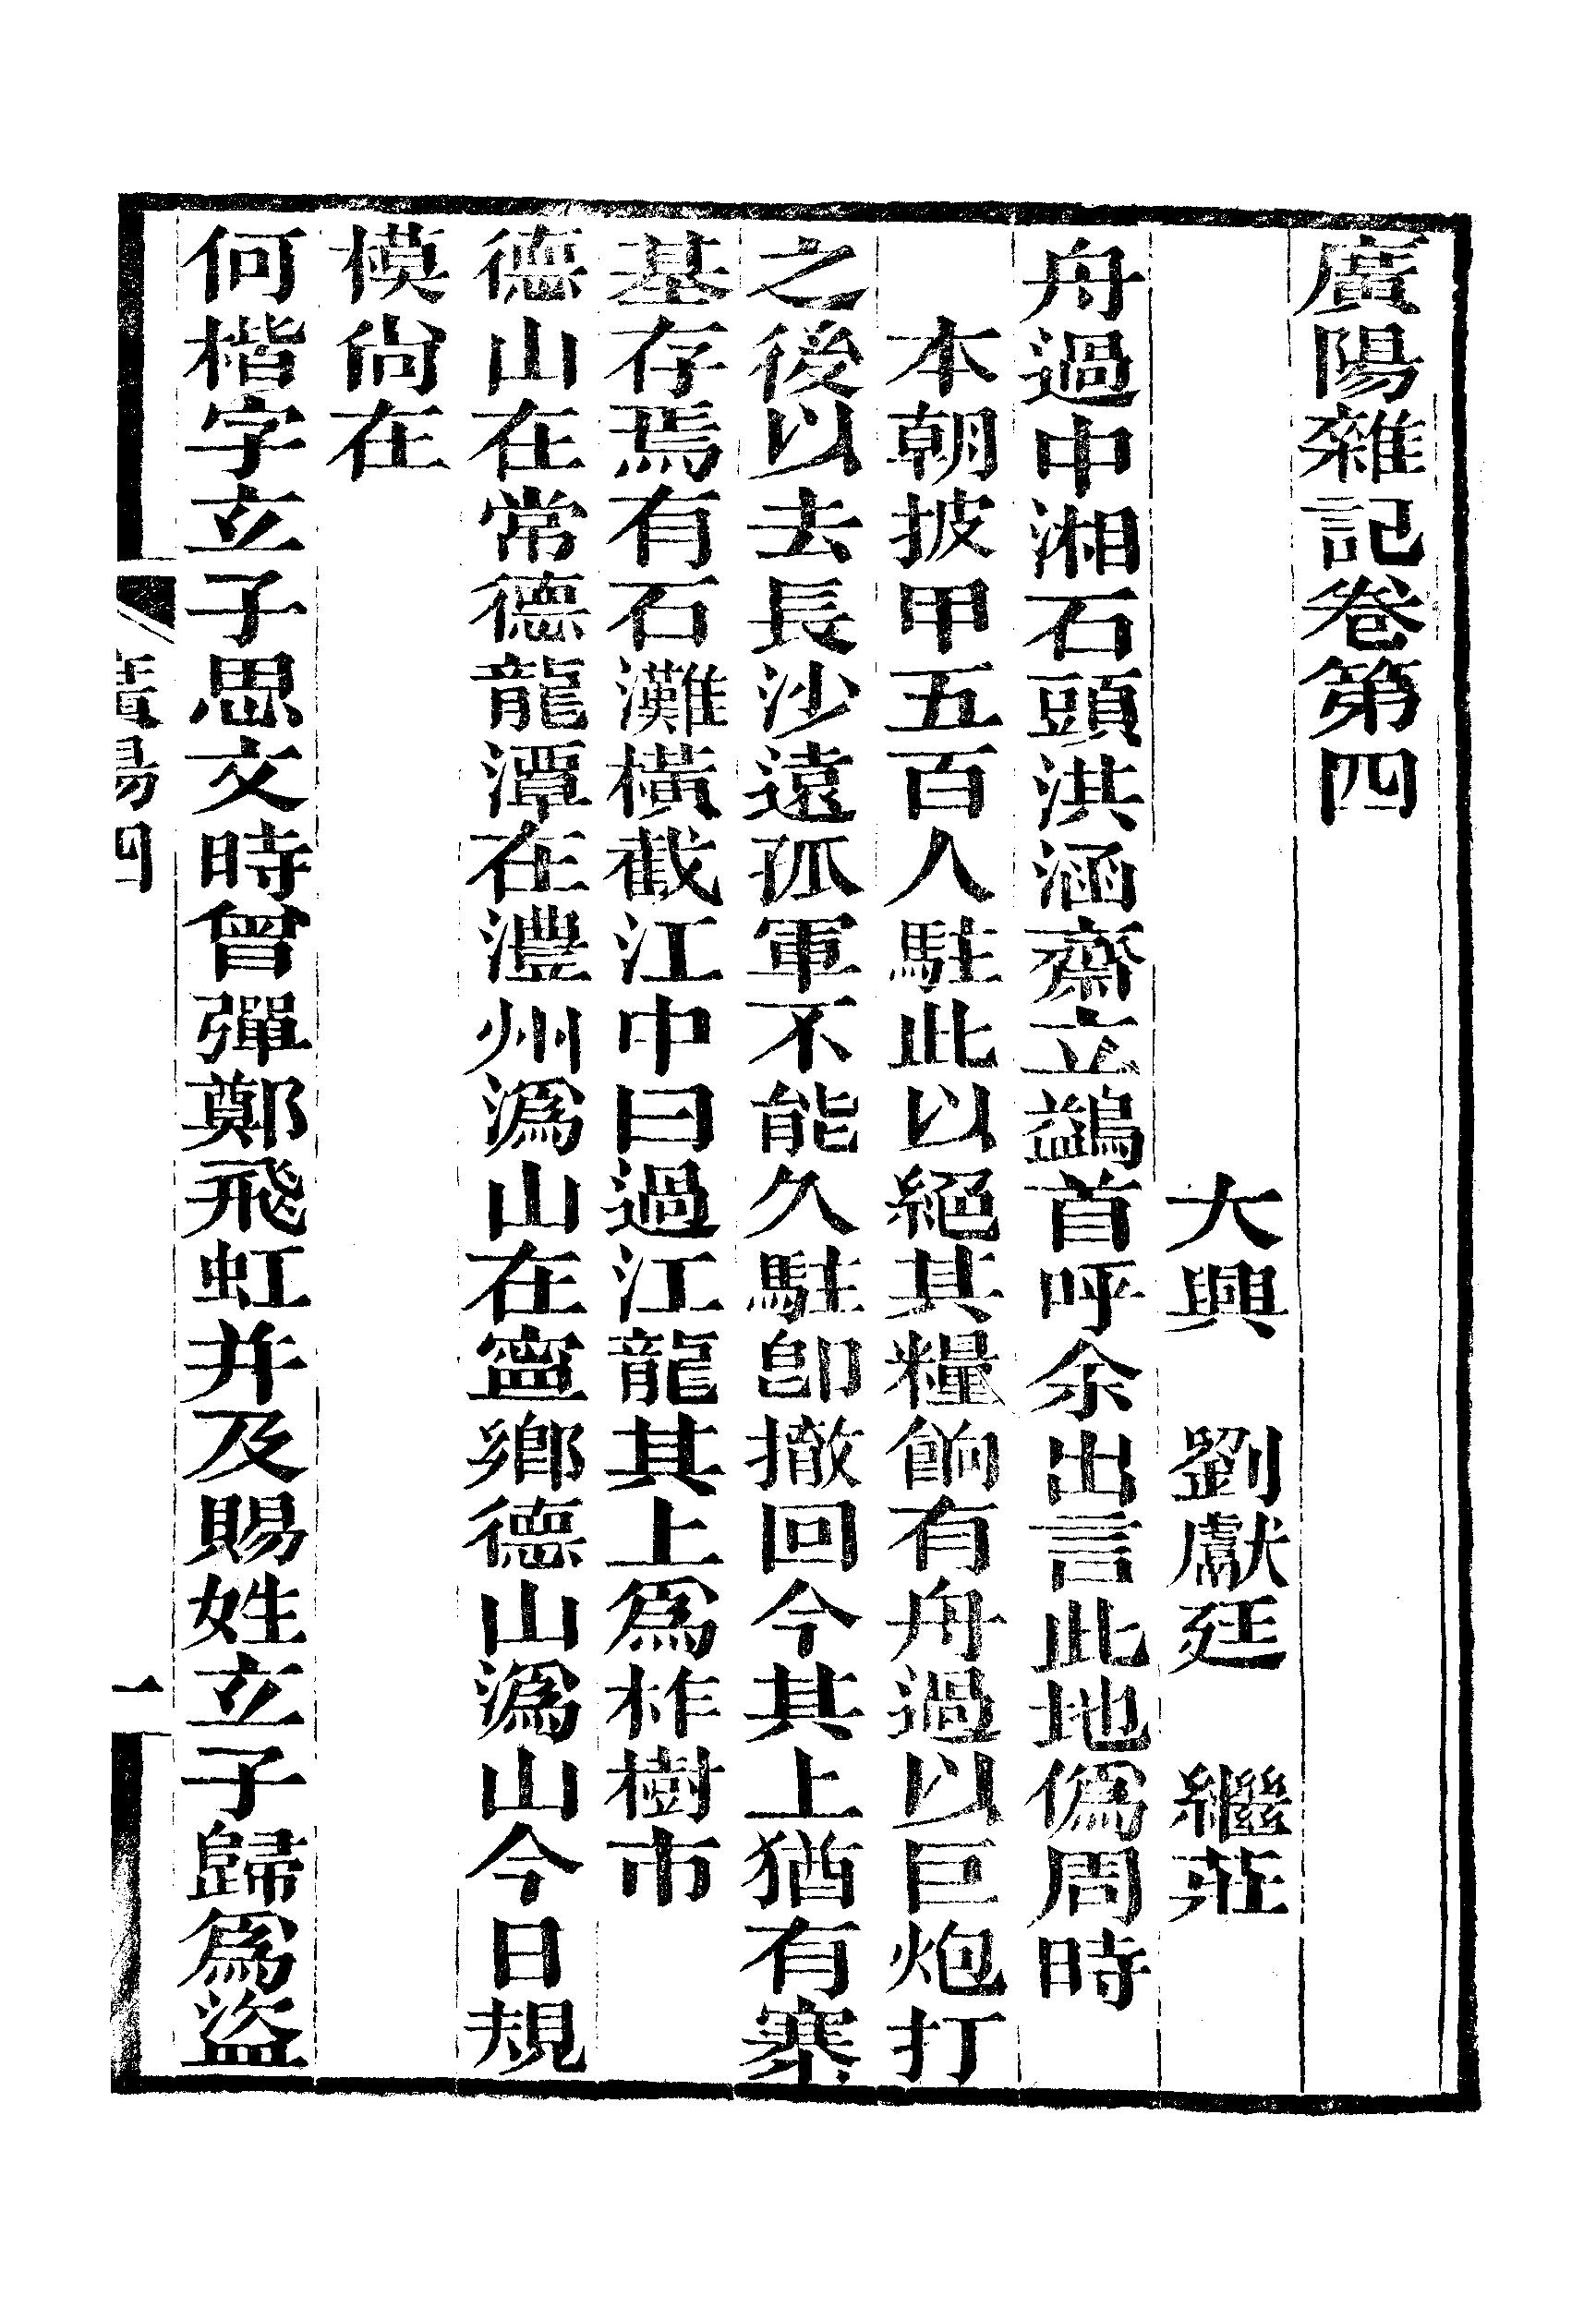 廣陽雜記卷第四
大興　劉獻廷　繼莊
舟過中湘石頭洪涵齋立鷁首呼余出言此地僞周時
本朝披甲五百人駐此以絕其糧餉有舟過以巨炮打
之後以去長沙遠孤軍不能久駐卽撤回今其上猶有寨
基存焉有石灘橫截江中曰過江龍其上爲柞樹市
德山在常德龍潭在澧州潙山在寧鄉德山潙山今日規
模尙在
何楷字立子思文時曾彈鄭飛虹并及賜姓立子歸爲盜
廣陽四
一